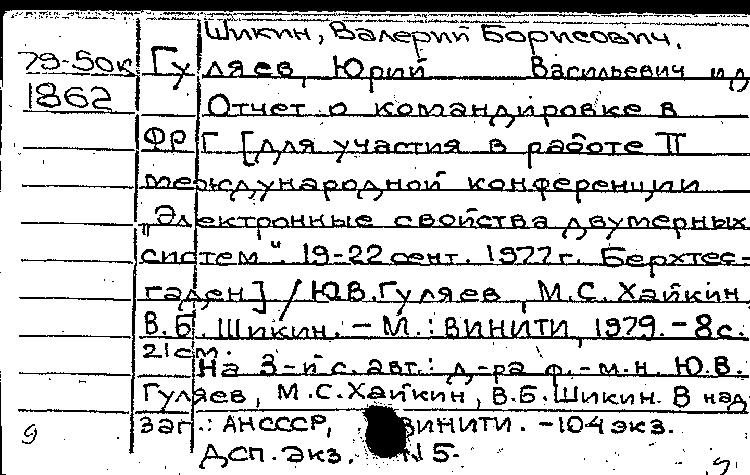 Шикин, Валерий Борисович,
79-50к Гуляев, Юрий Васильевич и д
1862 Отчет о командировке в
ФРГ [для участия в работе II
международной конференции
„Электронные свойства двумерных
систем". 19-22 сент. 1977г. Берхтес-
гаден] / Ю.В.Гуляев, М.С.Хайкин,
В.Б.Шикин. - М.: ВИНИТИ, 1979. - 8с.
21см.
На 3-й с. авт.: д-ра ф.-м.н. Ю.В.
Гуляев, М.С.Хайкин, В.Б.Шикин. В над
заг.: АНСССР, ВИНИТИ. -104экз.
9 Дсп. экз. N 5.